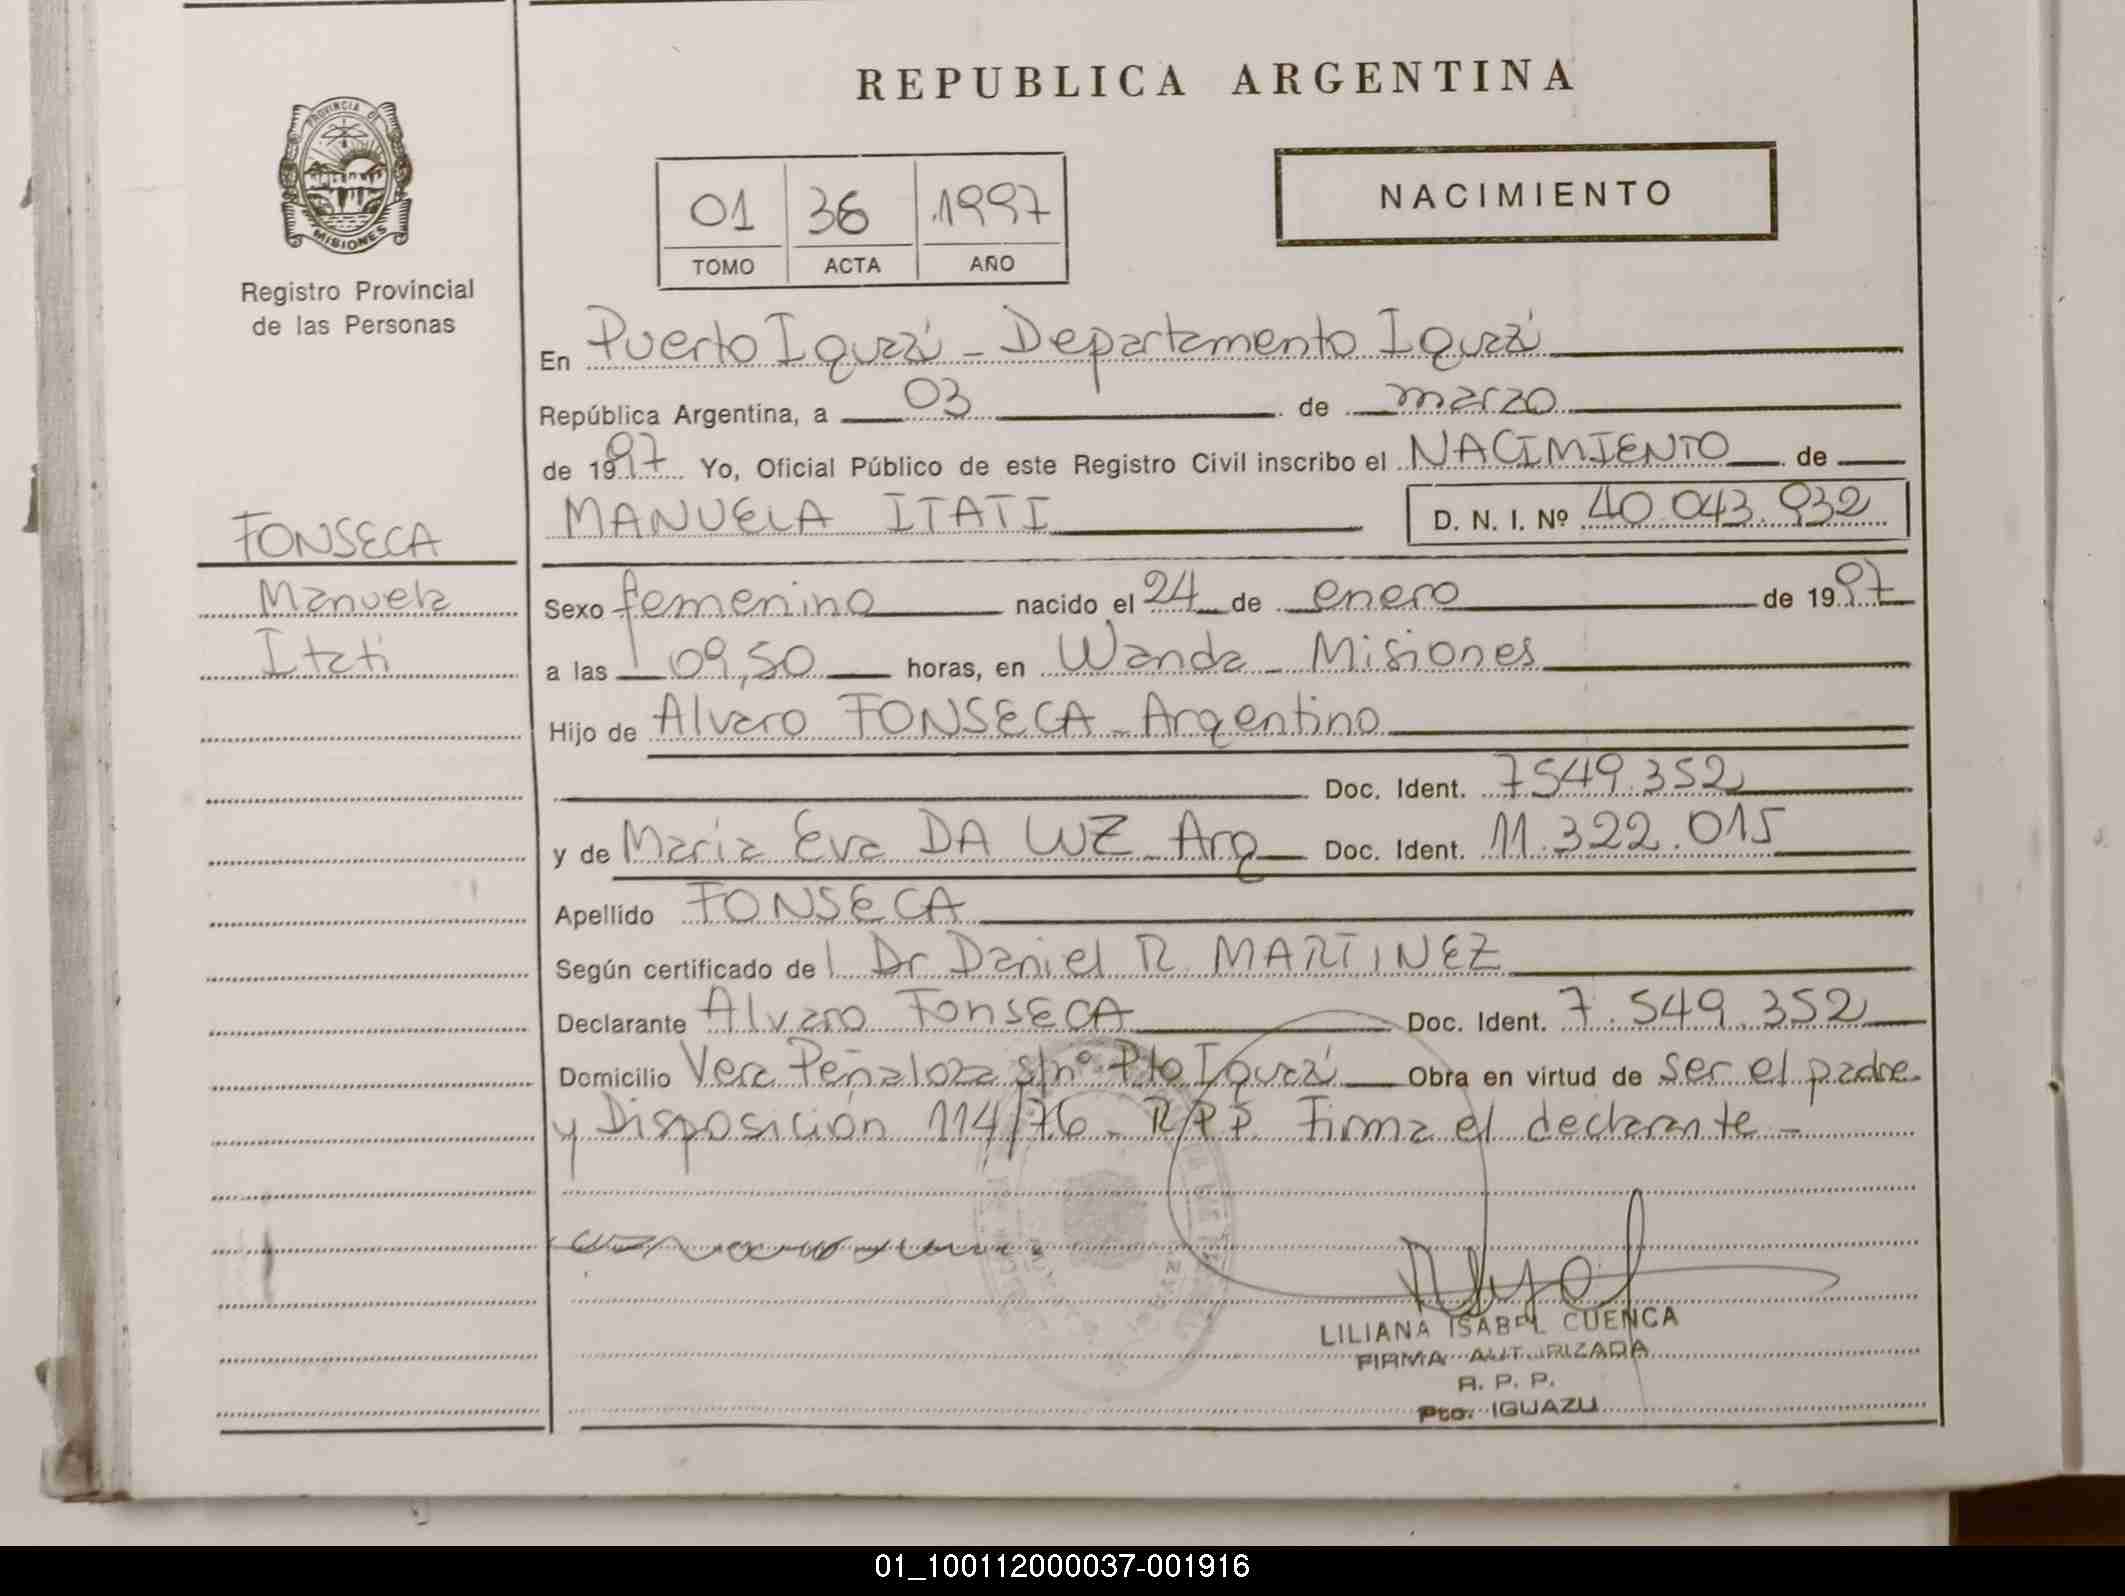 REPUBLICA ARGENTINA
PROVINCIA DE
MISIONES
Registro Provincial
de las Personas
01 36 1997
TOMO ACTA AÑO
NACIMIENTO
En Puerto Iguazú - Departamento Iguazú
República Argentina, a 03 de marzo
de 1997 Yo, Oficial Público de este Registro Civil inscribo el NACIMIENTO de
MANUELA ITATI D. N. I. Nº 40.043.932
FONSECA
Manuela
Itati
Sexo femenino nacido el 24 de enero de 1997
a las 09,50 horas, en Wanda - Misiones
Hijo de Alvaro FONSECA - Argentino
Doc. Ident. 7549.352
y de Maria Eva DA LUZ - Arg Doc. Ident. 11.322.015
Apellido FONSECA
Según certificado de Dr Daniel R. MARTINEZ
Declarante Alvaro FonSECA Doc. Ident. 7.549.352
Domicilio Vera Peñaloza s/nº Pto Iguazú Obra en virtud de ser el padre
y Disposición 114/76 - R.P.P. Firma el declarante -
LILIANA ISABEL CUENCA
FIRMA AUTORIZADA
R. P. P.
Pto. IGUAZU
01_100112000037-001916